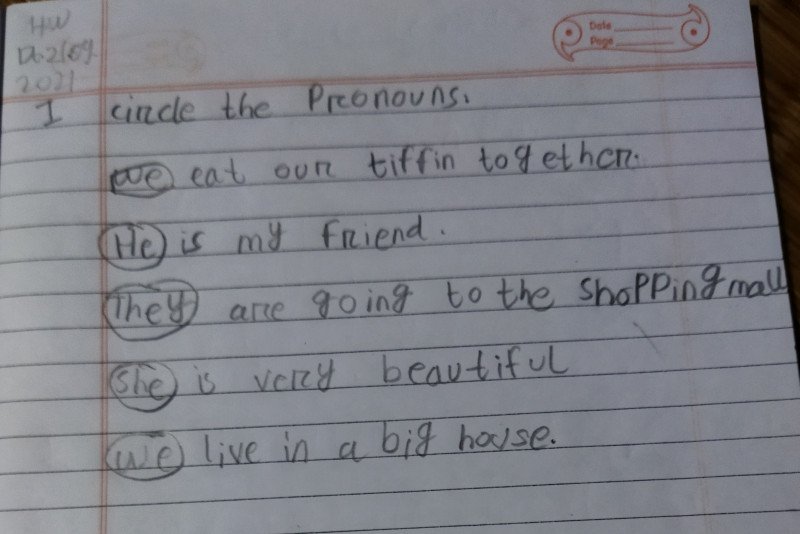 HW
2021
Date
Page
I circle the Pronouns.
We eat our tiffin together.
He is my friend.
They are going to the shopping mall
She is very beautiful
We live in a big house.